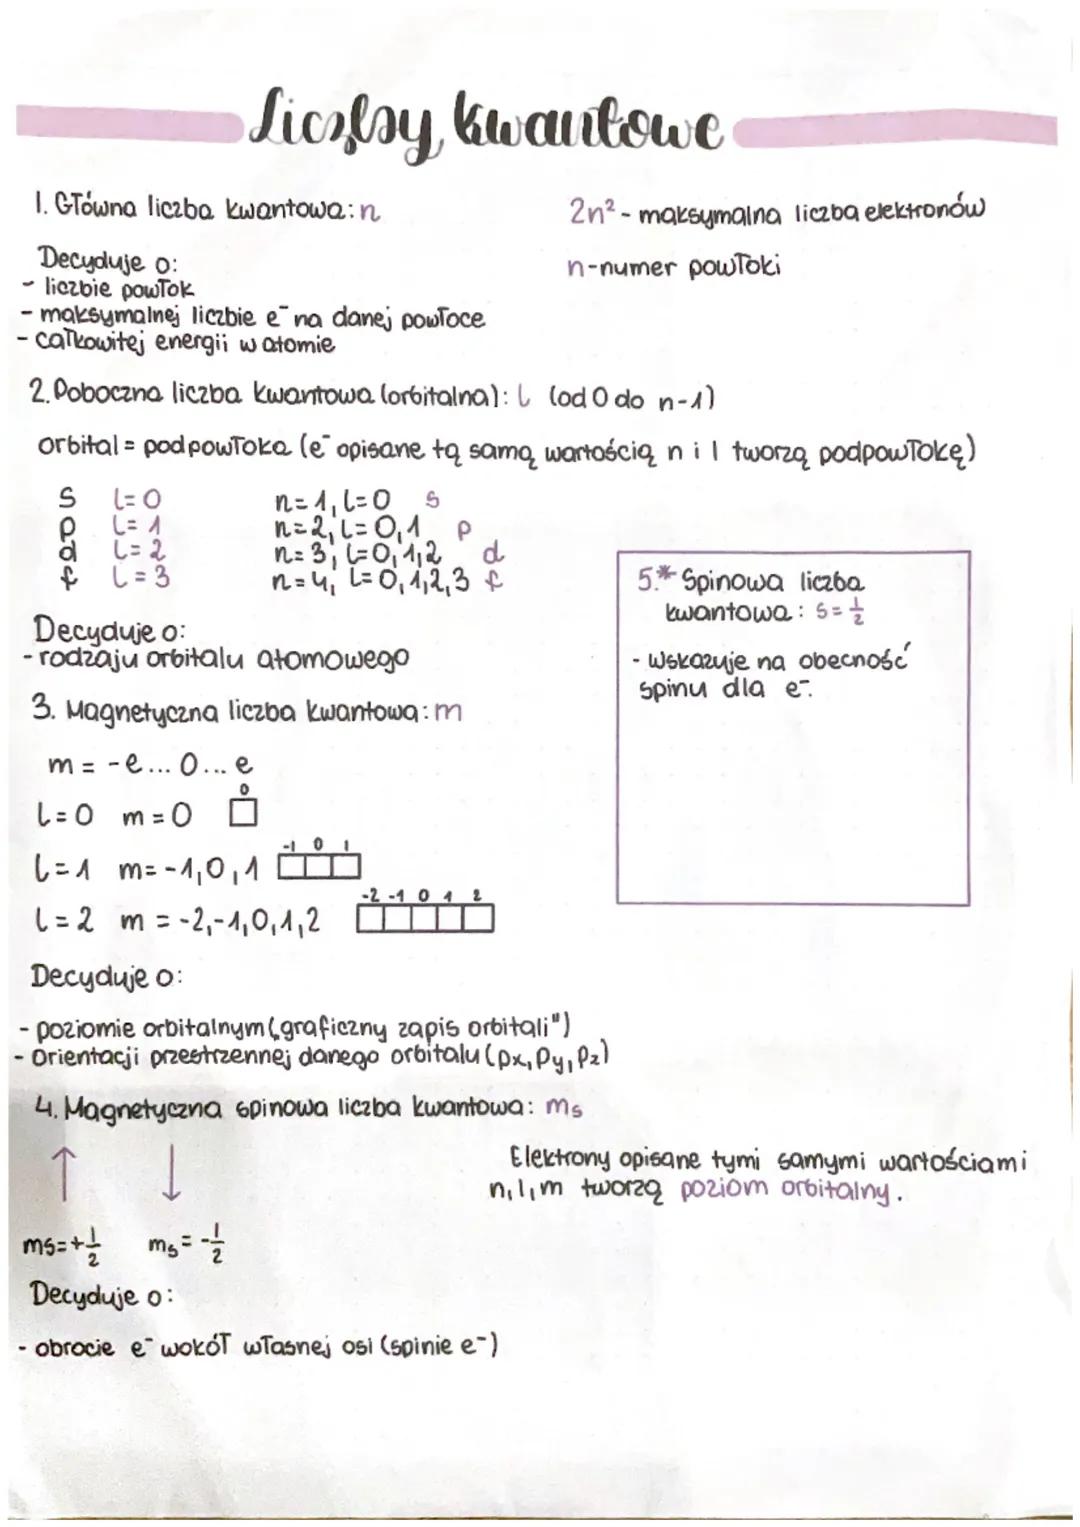 Liczby kwantowe
1. Główna liczba kwantowa: n
2n² - maksymalna liczba elektronów
n - numer powłoki
Decyduje o:
- liczbie powłok
- maksymalnej liczbie e⁻ na danej powłoce
- całkowitej energii w atomie
2. Poboczna liczba kwantowa (orbitalna): l (od 0 do n-1)
orbital = podpowłoka (e⁻ opisane tą samą wartością n i l tworzą podpowłokę)
s l=0
p l=1
d l=2
f l=3
n=1, l=0 s
n=2, l=0,1 p
n=3, l=0,1,2 d
n=4, l=0,1,2,3 f
Decyduje o:
- rodzaju orbitalu atomowego
5.* Spinowa liczba
kwantowa: s=½
- Wskazuje na obecność
spinu dla e⁻.
3. Magnetyczna liczba kwantowa: m
m = -e... 0... e
0
l=0 m=0
-1 0 1
l=1 m=-1,0,1
-2 -1 0 1 2
l=2 m=-2,-1,0,1,2
Decyduje o:
- poziomie orbitalnym („graficzny zapis orbitali")
- Orientacji przestrzennej danego orbitalu (px, py, pz)
4. Magnetyczna spinowa liczba kwantowa: ms
↑ ↓
ms=+½ ms=-½
Elektrony opisane tymi samymi wartościami
n, l, m tworzą poziom orbitalny.
Decyduje o:
- obrocie e⁻ wokół własnej osi (spinie e⁻)